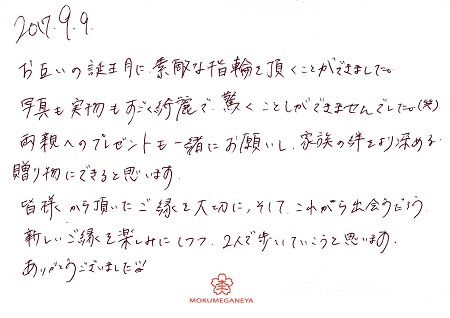 2017.9.9.
お互いの誕生月に、素敵な指輪を頂くことができました。
写真も実物もすごく綺麗で、驚くことしかできませんでした。(笑)
両親へのプレゼントも一緒にお願いし、家族の絆をより深める
贈り物にできると思います。
皆様から頂いたご縁を大切に、そして、これから出会うだろう
新しいご縁を楽しみにしつつ、2人で歩いていこうと思います。
ありがとうございました!!
MOKUMEGANEYA